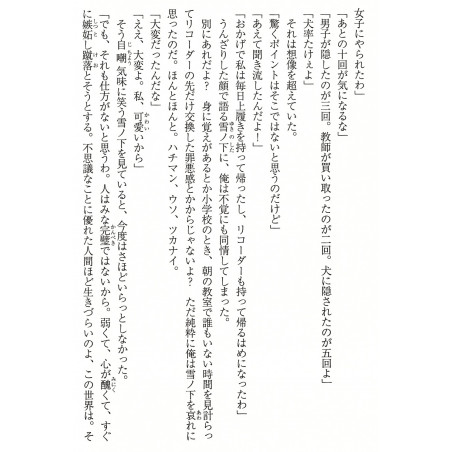 女子にやられたわ」
「あとの十回が気になるな」
「男子が隠したのが三回。教師が買い取ったのが二回。犬に隠されたのが五回よ」
「犬率たけえよ」
それは想像を超えていた。
「驚くポイントはそこではないと思うのだけど」
「あえて聞き流したんだよ！」
「おかげで私は毎日上履きを持って帰ったし、リコーダーも持って帰るはめになったわ」
うんざりした顔で語る雪ノ下に、俺は不覚にも同情してしまった。
別にあれだよ？　身に覚えがあるとか小学校のとき、朝の教室で誰もいない時間を見計らっ
てリコーダーの先だけ交換した罪悪感とかからじゃないよ？　ただ純粋に俺は雪ノ下を哀れに
思ったのだ。ほんとほんと。ハチマン、ウソ、ツカナイ。
「大変だったんだな」
「ええ、大変よ。私、可愛いから」
そう自嘲気味に笑う雪ノ下を見ていると、今度はさほどいらっとしなかった。
「でも、それも仕方がないと思うわ。人はみな完璧ではないから。弱くて、心が醜くて、すぐ
に嫉妬し蹴落とそうとする。不思議なことに優れた人間ほど生きづらいのよ、この世界は。そ